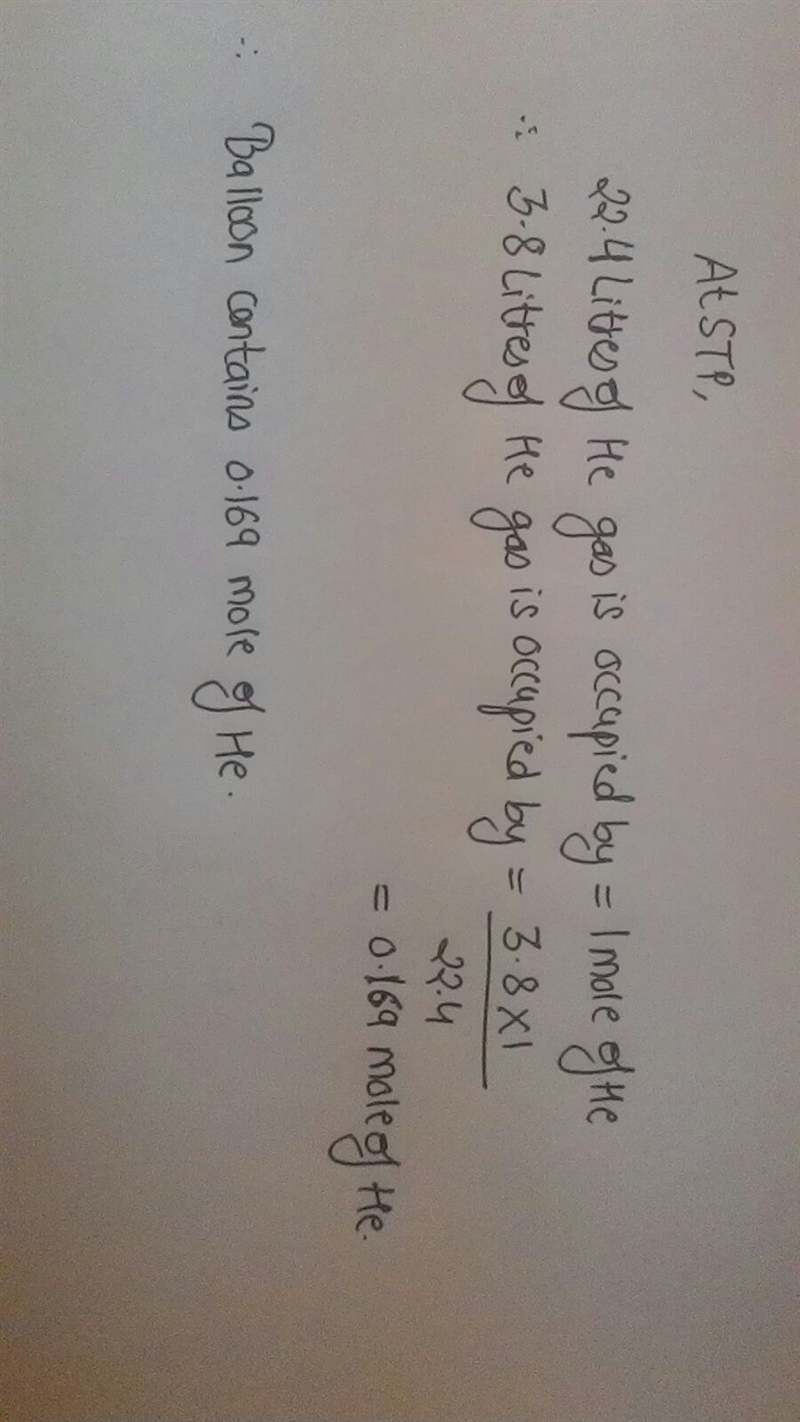 At STP,
22.4 Litres of He gas is occupied by = 1 mole of He
∴ 3.8 Litres of He gas is occupied by = 3.8 x 1
22.4
= 0.169 mole of He.
∴ Balloon contains 0.169 mole of He.